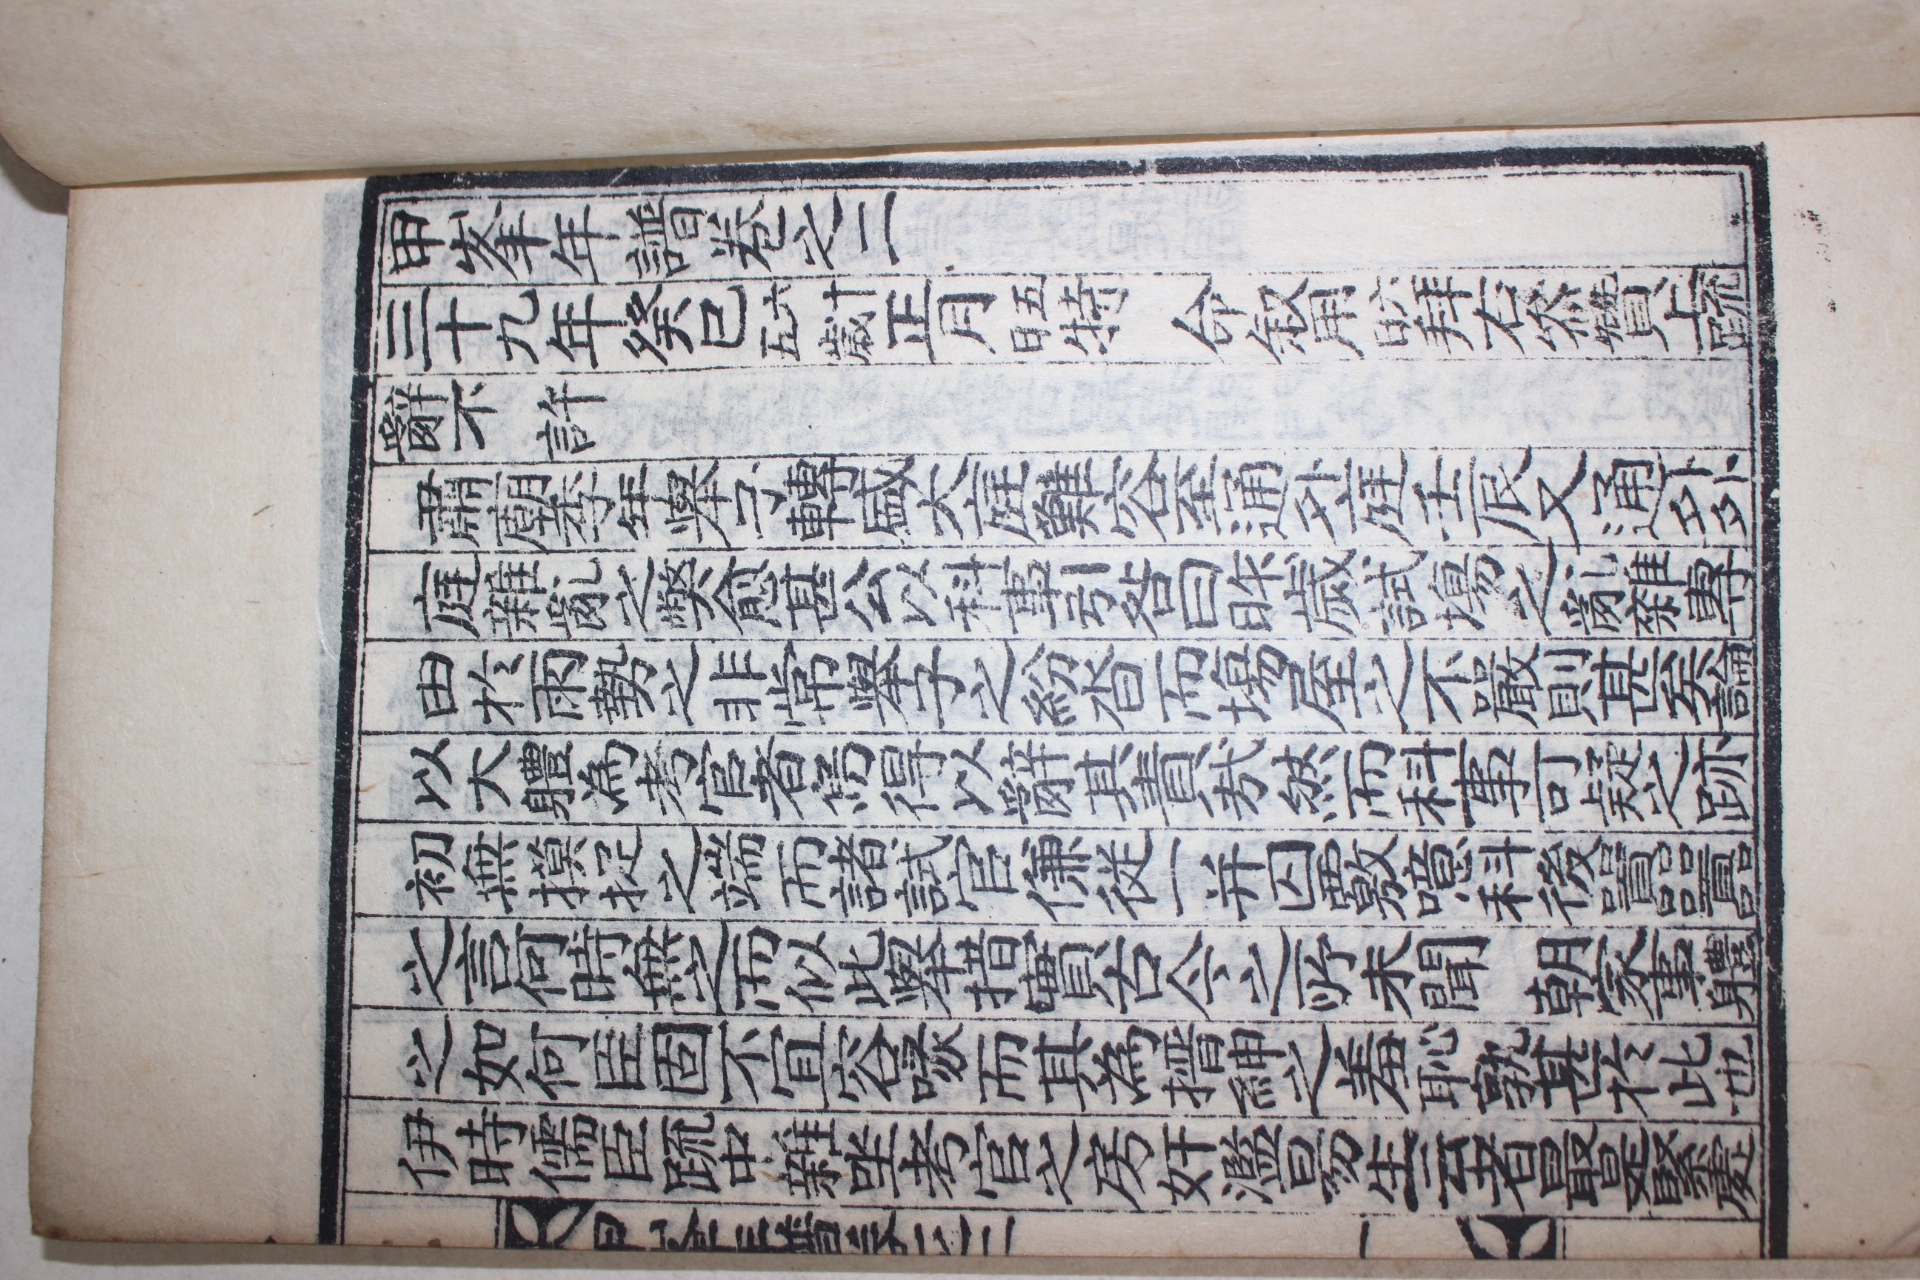 甲峯年譜卷之二
三十九年癸巳六十五歲正月五日特 命叙用六日拜右參贊上疏
辭不 許
肅廟季年舉子轉盛大庭難容至通外庭壬辰又通外外
庭雜亂之弊愈甚公以科事引咎曰昨歲試場之亂雜專
由於雨勢之非常舉子之紛沓而場屋之不嚴則甚矣論
以大軆為考官者焉得以辭其責㢤然而科事可疑之跡
初無摸捉之端而諸試官傔從一并囚覈噫科後嚣嚣
之言何時無之而似此舉措實古今之所未聞 朝家事軆
之如何臣固不宜容喙而其為搢紳之羞恥孰甚於此也
伊時儒臣疏中雜坐考官之房奸濫易生云者最是緊處
甲峯年譜卷之二 一